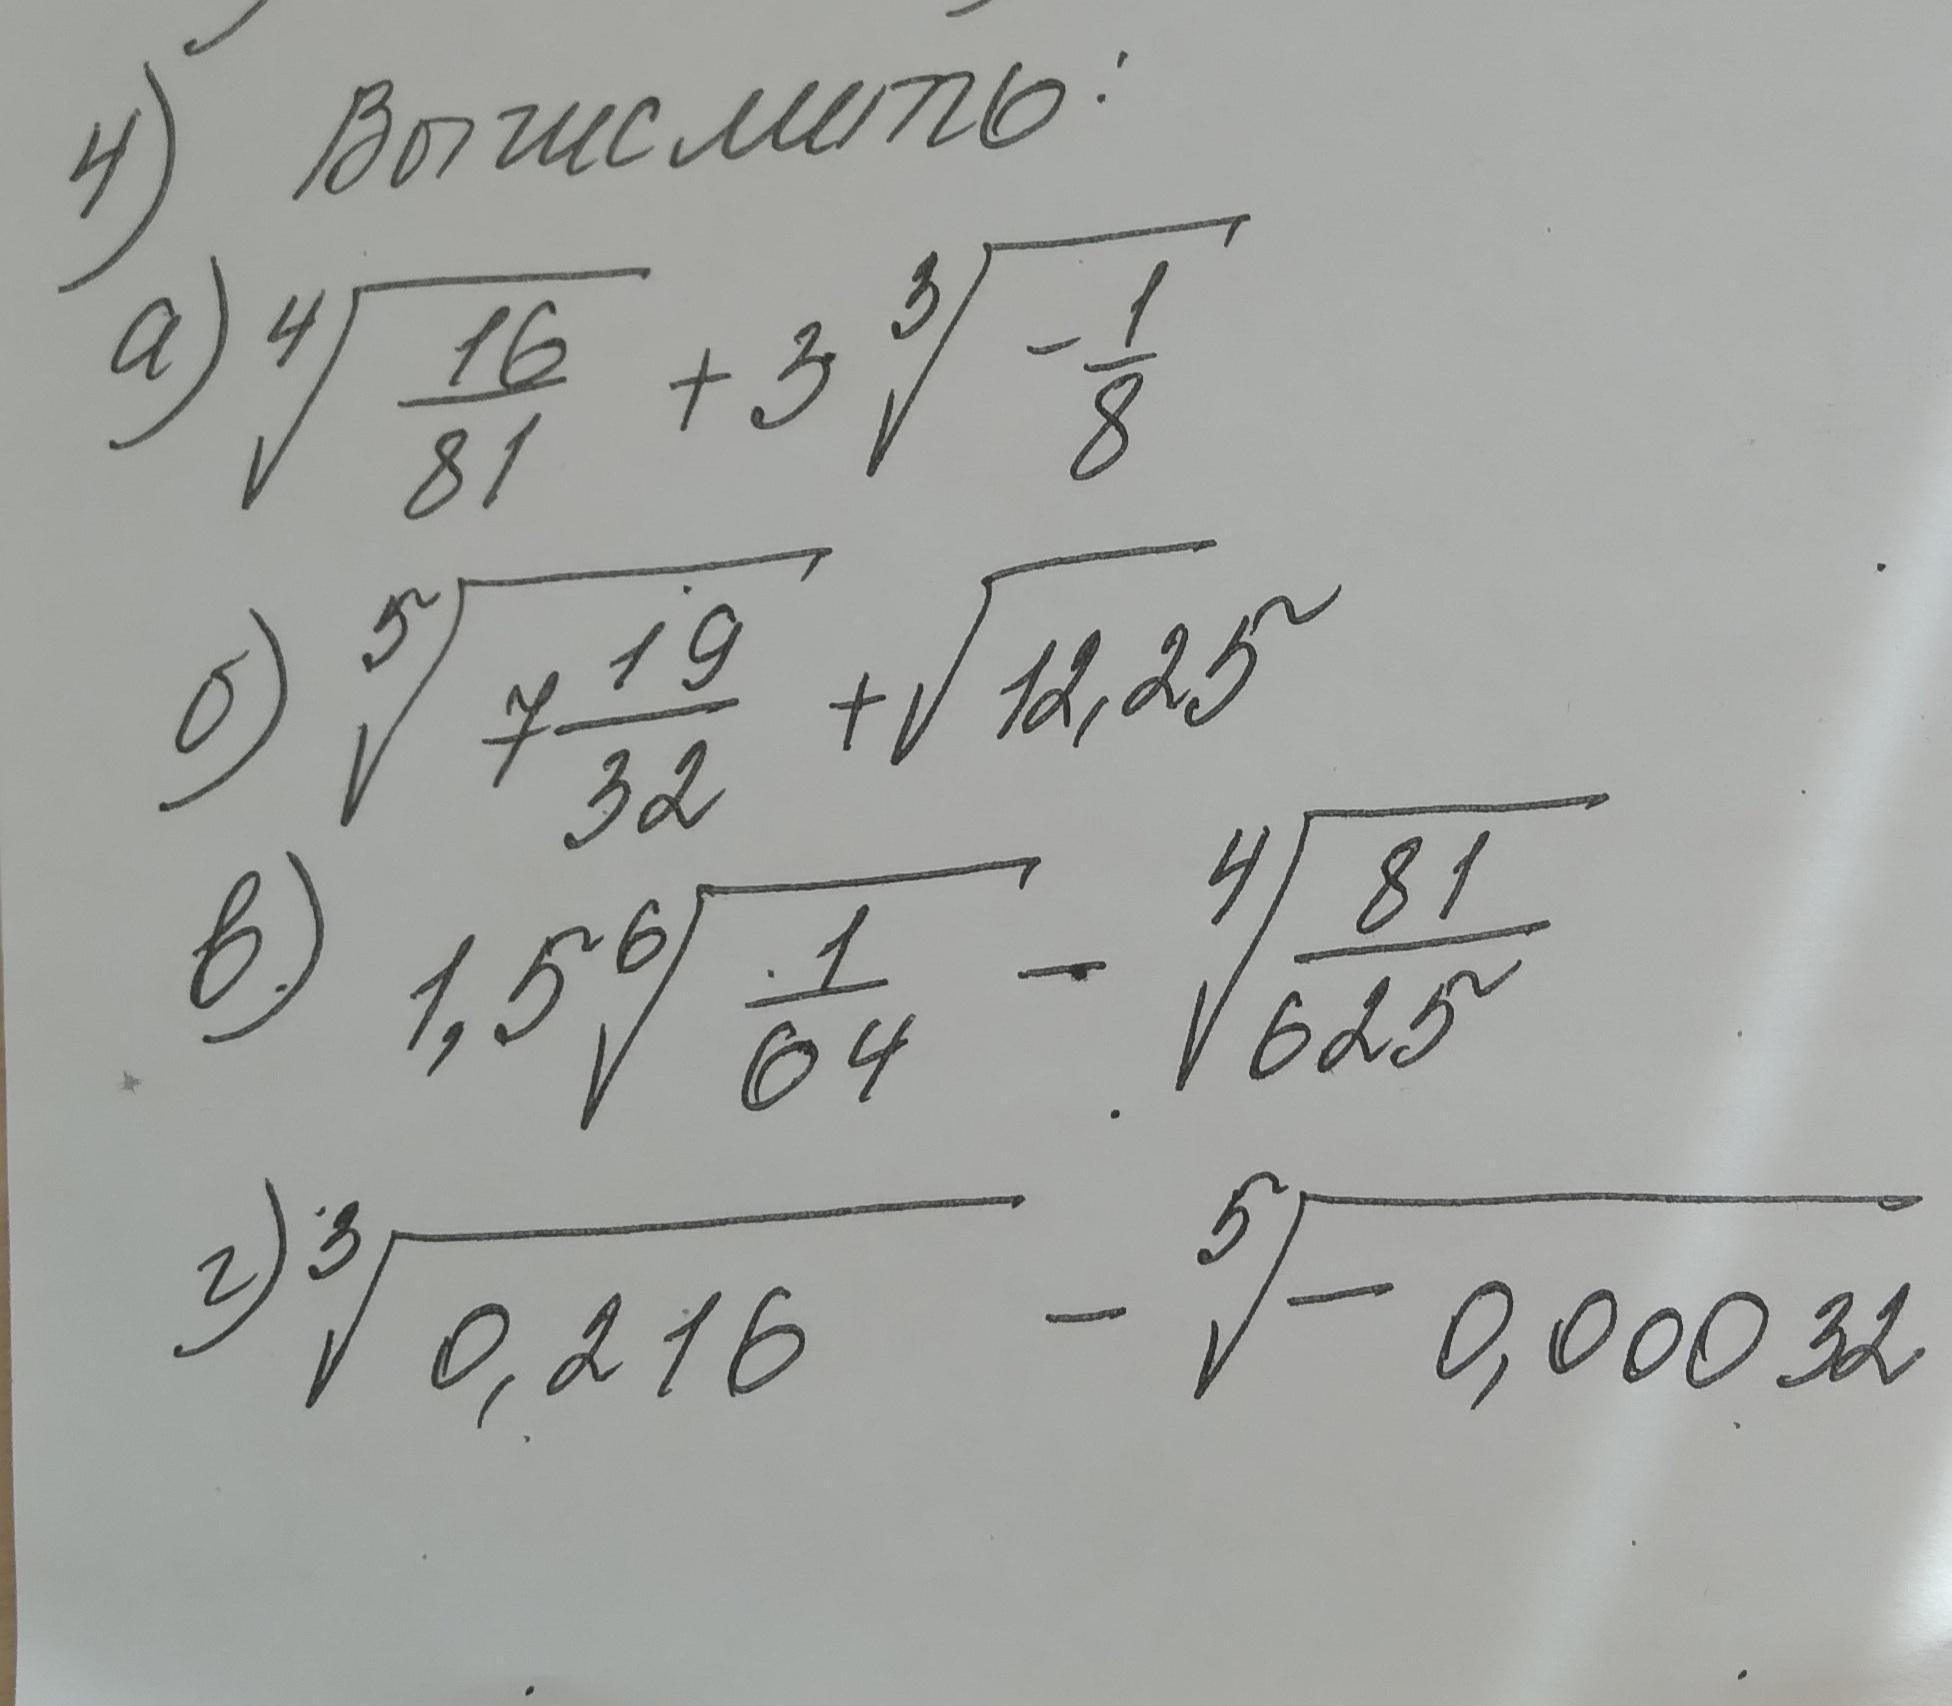 4) Вычислить:
а) ⁴√(16/81) + 3 ³√(-1/8)
б) ⁵√(7 19/32) + √12,25
в) 1,5 ⁶√(1/64) - ⁴√(81/625)
г) ³√(0,216) - ⁵√(-0,00032)